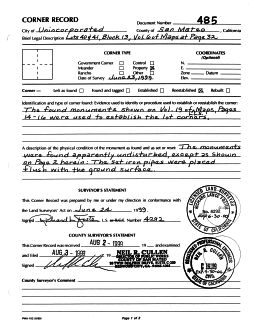 CORNER RECORD
Document Number 485
City of Unincorporated County of San Mateo California
Brief Legal Description Lots 40 & 41, Block 13, Vol. 6 of Maps at Page 32
CORNER TYPE
COORDINATES
(Optional)
Government Corner Control
Meander Property
Rancho Other
Date of Survey
N.
E.
Zone Datum
Elev.
Corner – Left as found Found and tagged Established Reestablished Rebuilt
Identification and type of corner found: Evidence used to identify or procedure used to establish or reestablish the corner:
The found monuments shown on Vol. 19 of Maps, Pages
14-16 were used to establish the lot corners.
A description of the physical condition of the monument as found and as set or reset: The monuments
were found apparently undisturbed, except as shown
on Page 2 herein: The set iron pipes were placed
flush with the ground surface.
SURVEYOR'S STATEMENT
This Corner Record was prepared by me or under my direction in conformance with
the Land Surveyors' Act on June 24, 1999.
Signed L.S. Number 4292
COUNTY SURVEYOR'S STATEMENT
This Corner Record was received AUG 2 - 1999 and examined
and filed AUG 3 - 1999
NEIL R. CULLEN
County Surveyor's Comment
Page 1 of 2